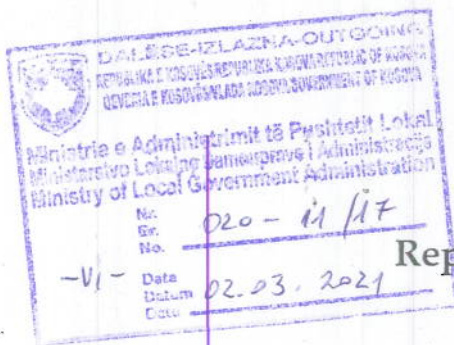 DALESE-IZLAZNA-OUTGOING
REPUBLIKA E KOSOVËS/REPUBLIKA KOSOVA/REPUBLIC OF KOSOVA
QEVERIA E KOSOVËS/VLADA KOSOVA/GOVERNMENT OF KOSOVA
Ministria e Administrimit të Pushtetit Lokal
Ministarstvo Lokalne Samouprave i Administracije
Ministry of Local Government Administration
Nr.
Br.
No. 020 - 11/17
Rep
-VI-
Data
Datum
Date 02.03.2021